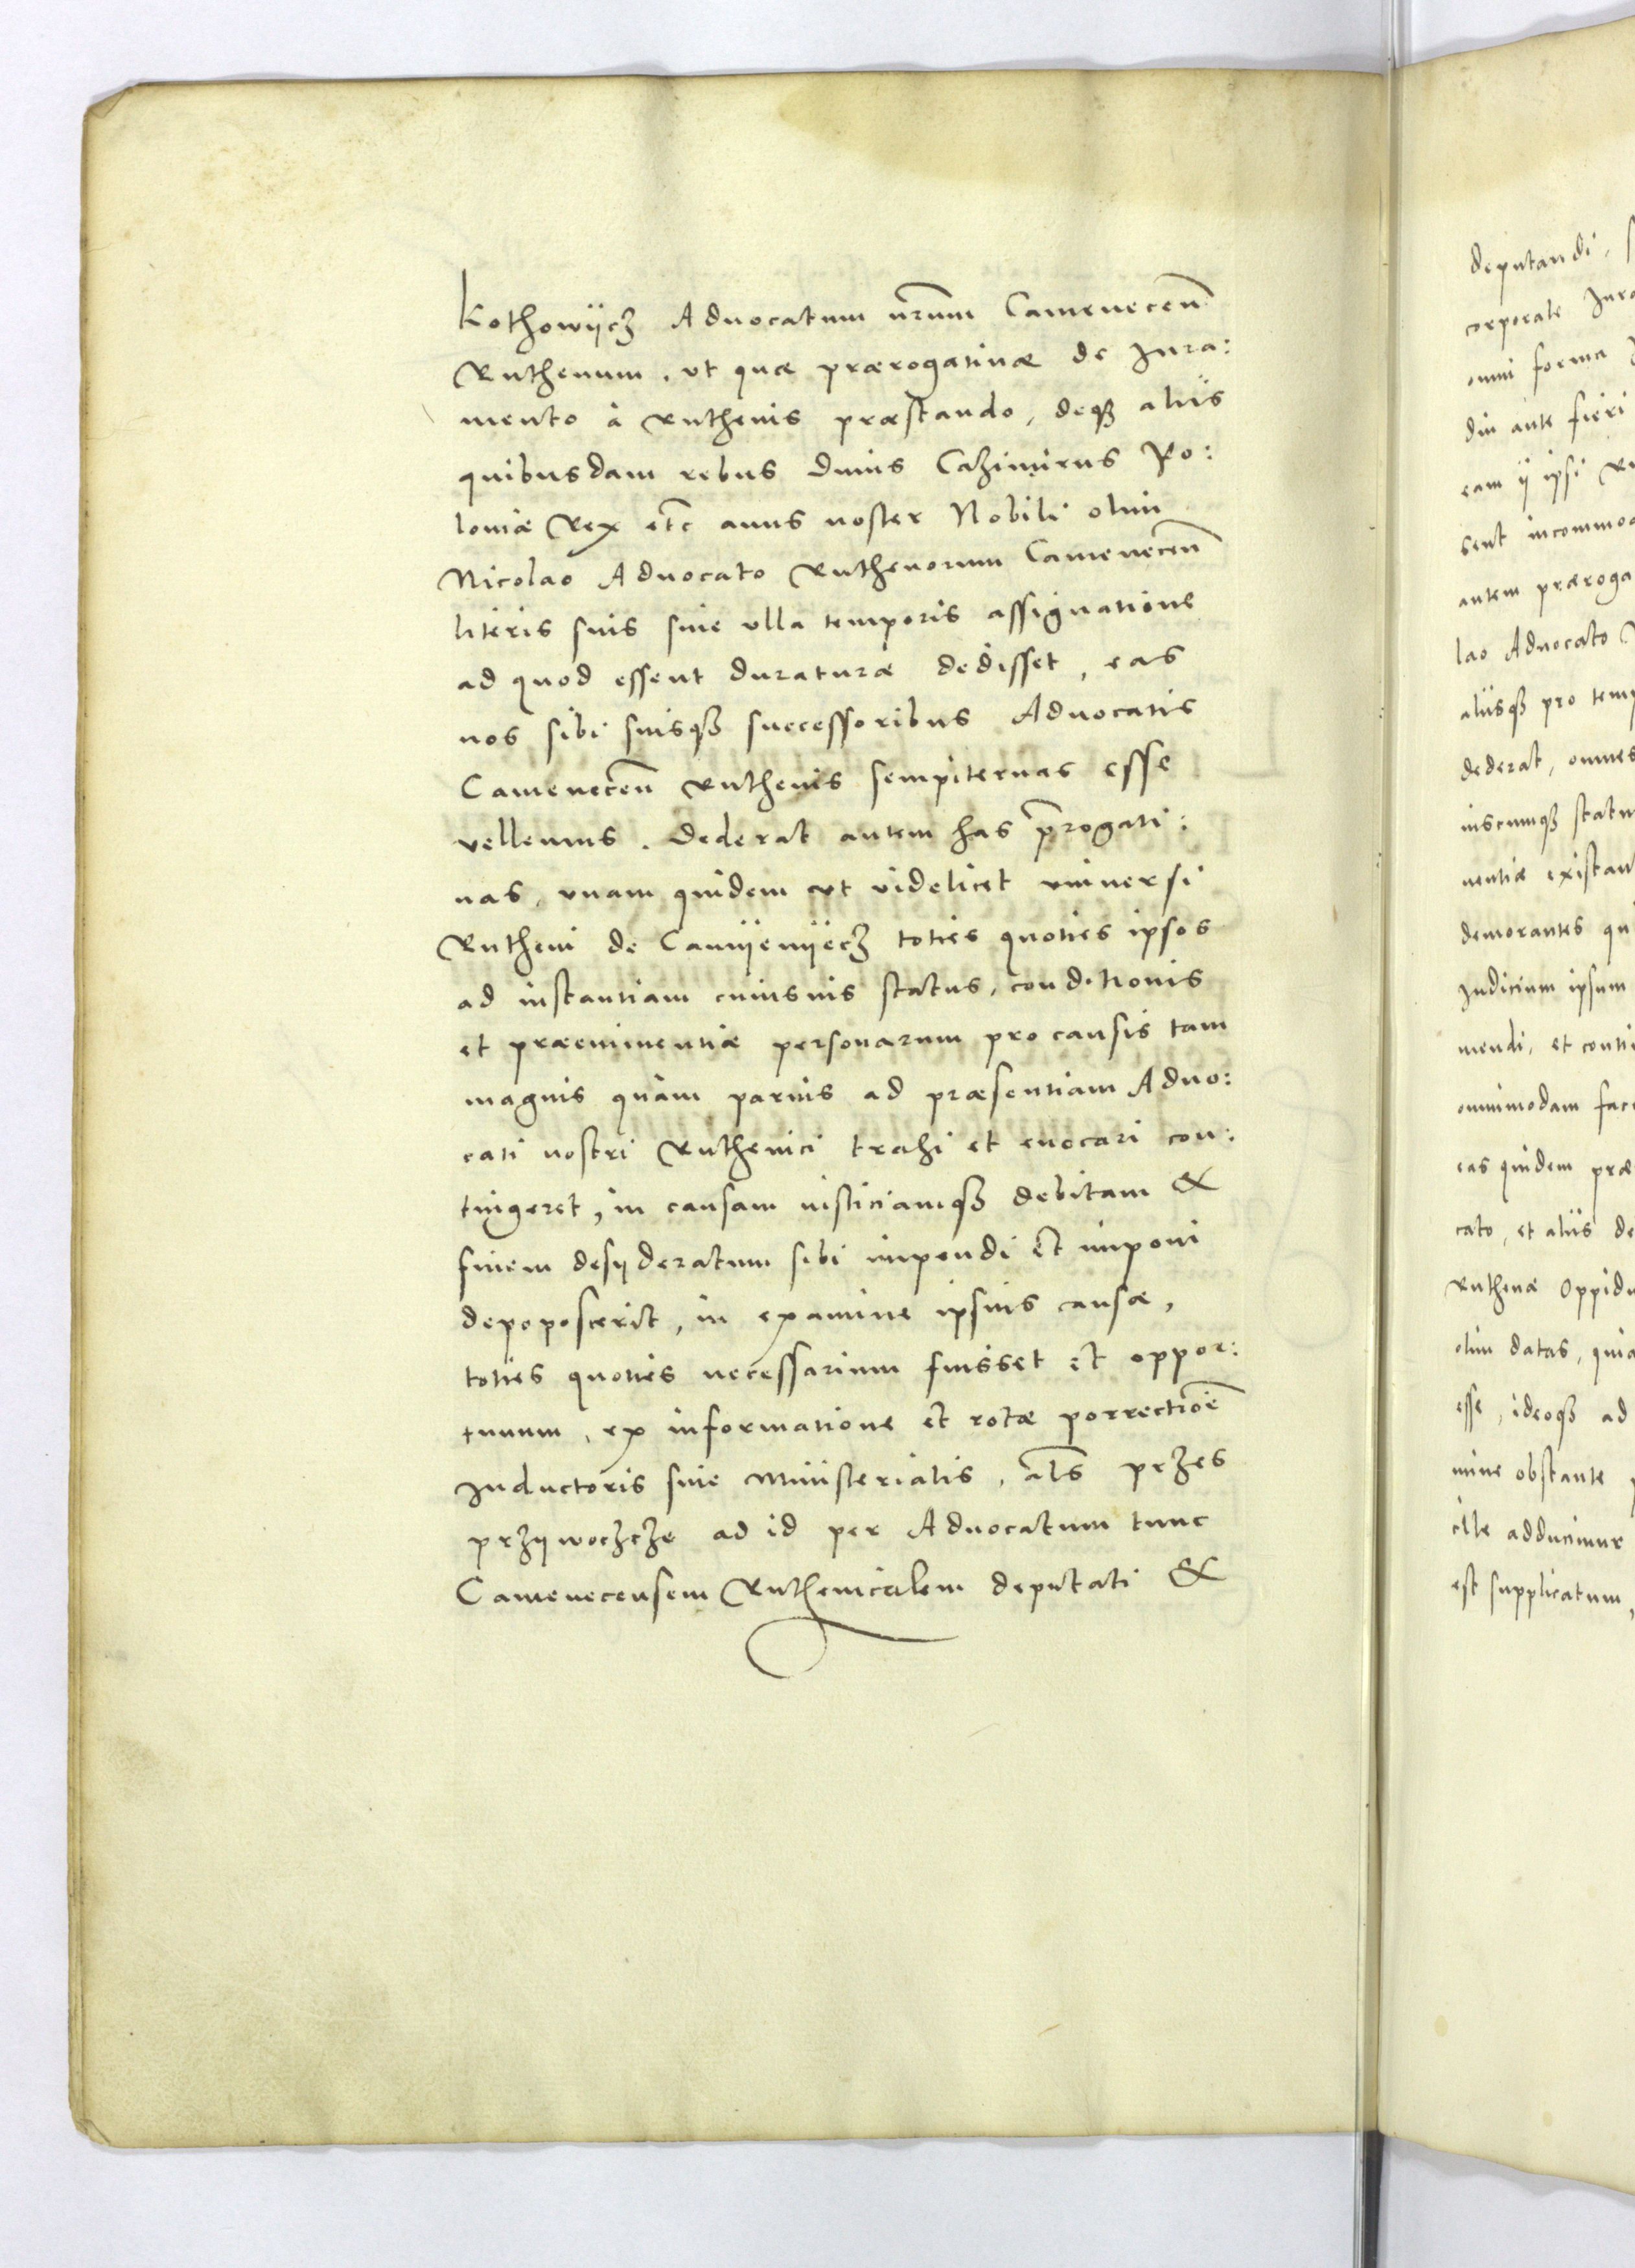 Kothowijcz Aduocatum nrum Camenecen
Ruthenum, vt quæ prærogatiuæ de Jura:
mento à Ruthenis præstando, deqз alijs
quibusdam rebus Diuus Cazimirus Po:
loniæ Rex etc auus noster Nobili olim
Nicolao Aduocato Ruthenorum Camenecen
literis suis sine vlla temporis assignatione
ad quod essent duraturæ dedisset, eas
nos sibi suisqз successoribus Aduocatis
Camenecen Ruthenis sempiternas esse
vellemus. Dederat autem has prrogati:
uas, vnam quidem vt videlicet vniuersi
Rutheni de Camijenijecz toties quoties ipsos
ad instantiam cuiusuis status, conditionis
et præeminentiæ personarum pro causis tam
magnis quàm paruis ad præsentiam Aduo:
cati nostri Ruthenici trahi et euocari con:
tingeret, in causam iusticiamqз debitam &
finem desyderatum sibi impendi et imponi
depoposcerit, in examine ipsius causæ,
toties quoties necessarium fuisset et oppor:
tunum, ex informatione et rotæ porrectioe
Inductoris siue Ministerialis, als przes
przywoczcze ad id per Aduocatum tunc
Camenecensem Ruthenicalem deputati &
deputandi,
corporale Jura
omni forma
diu ante fieri
eam ij ipsi Ru
sent incommod
autem præroga
lao Aduocato
alijsqз pro temp
dederat, omnes
iuscumqз statu
nentiæ existan
demorantes qu
Judicium ipsum
mendi, et conti
omnimodam fac
eas quidem præ
cato, et alijs de
Ruthenæ Oppidu
olim datas, quia
esse, ideoqз ad
mine obstante
cile adducimur
est supplicatum,